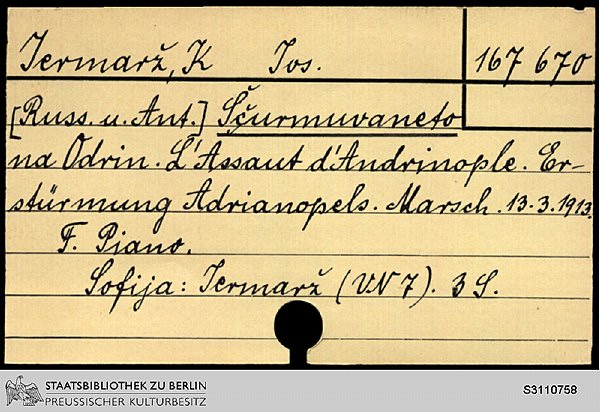 Jermarž, K Jos. 167 670
[Russ. u. Ant.] Ščurmuvaneto
na Odrin. L'Assaut d'Andrinople. Er-
stürmung Adrianopels. Marsch. 13.3.1913.
F. Piano.
Sofija: Jermarž (VN 7). 3 S.
STAATSBIBLIOTHEK ZU BERLIN
PREUSSISCHER KULTURBESITZ
S3110758